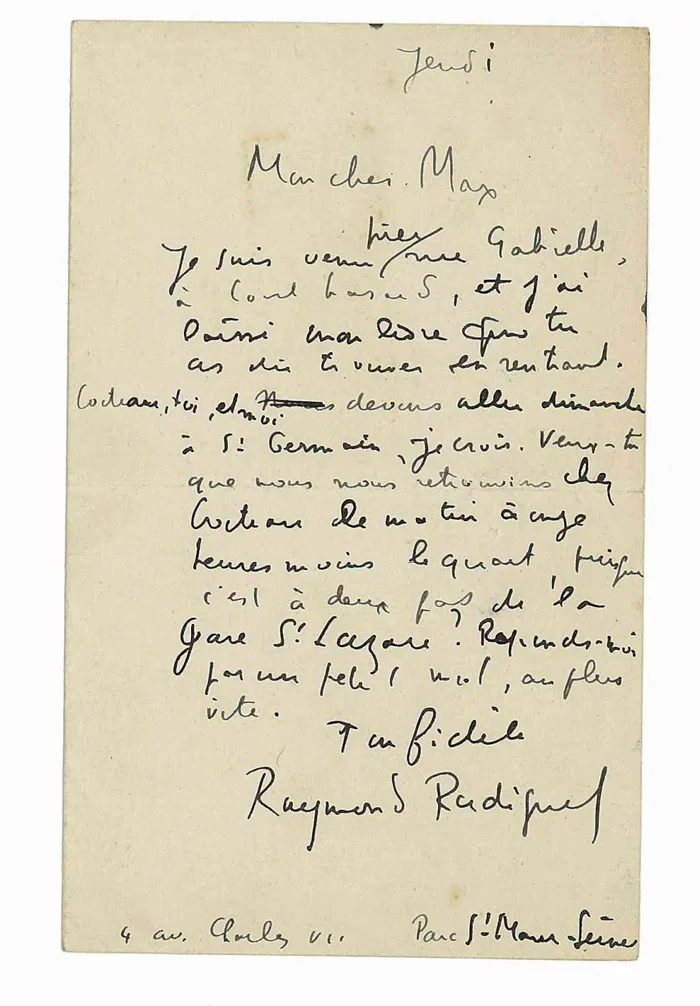 Jeudi
Mon cher Max
Je suis venu hier rue Gabrielle,
à tout hasard, et j'ai
laissé mon livre que tu
as dû trouver en rentrant.
Cocteau, toi, et moi devons aller dimanche
à St Germain, je crois. Veux-tu
que nous nous retrouvions chez
Cocteau le matin à onze
heures moins le quart, puisque
c'est à deux pas de la
gare St Lazare ? Réponds-moi
par un petit mot, au plus
vite.
Ton fidèle
Raymond Radiguet
4 av. Charles VII Parc St-Maur-Seine